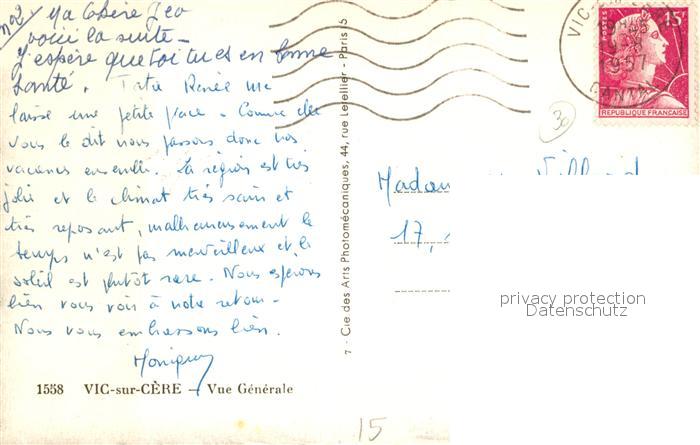 n°2 Ma Chère Geo
voici la suite -
J'espère que toi tu es en bonne
santé. Tatie Renée me
laisse une petite place. Comme elle
vous le dit nous passons donc nos
vacances ensemble. La région est très
jolie et le climat très sain et
très reposant, malheureusement le
temps n'est pas merveilleux et le
soleil est plutôt rare. Nous espérons
bien vous voir à notre retour.
Nous vous embrassons bien.
Monique
1558 VIC-sur-CÈRE — Vue Générale
7 - Cie des Arts Photomécaniques, 44, rue Letellier - Paris 15
VIC
1957
CANTAL
POSTES
15F
REPUBLIQUE FRANÇAISE
30
Madam
17,
privacy protection
Datenschutz
15